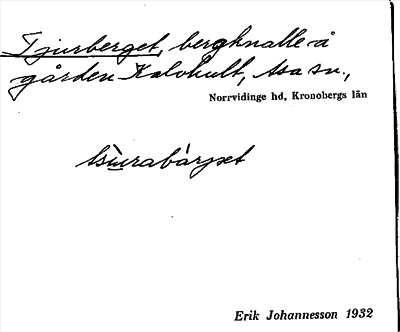 Tjurberget, bergknalle å
gården Kalvhult, Asa sn.,
Norrvidinge hd, Kronobergs län
Erik Johannesson 1932